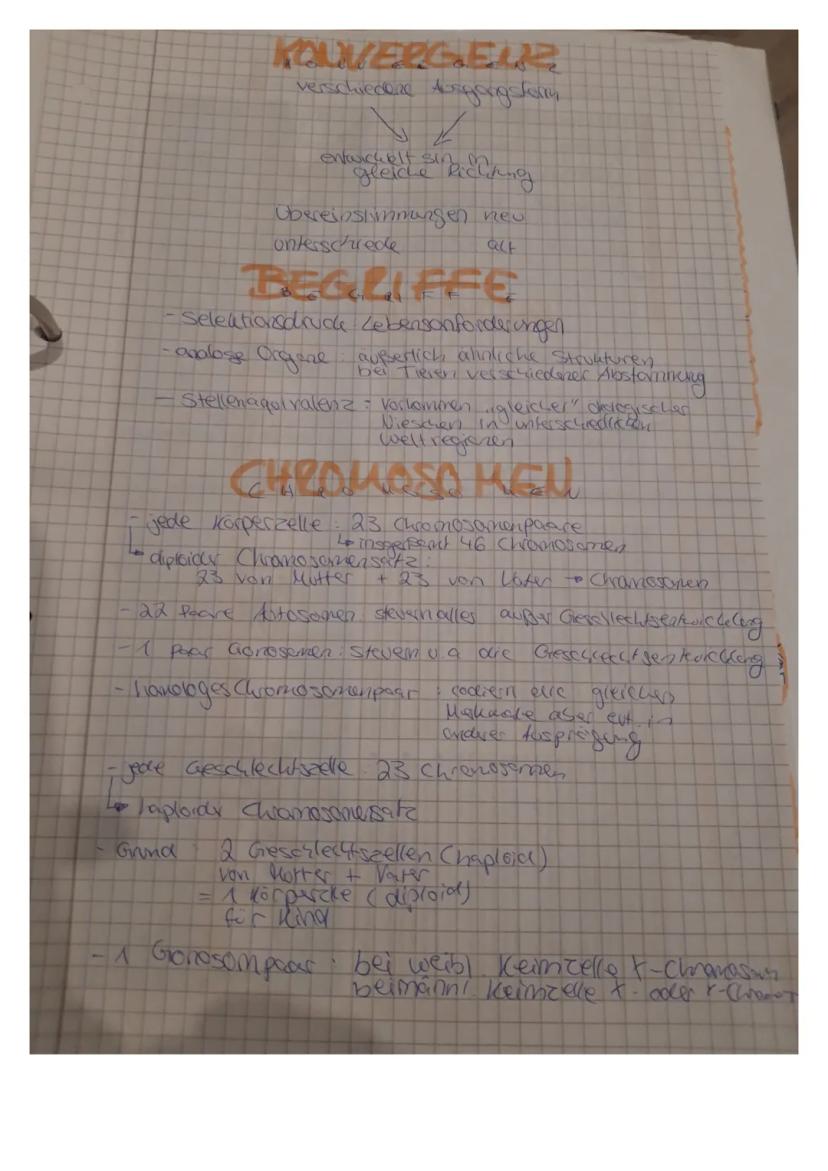 KONVERGENZ
verschiedene Ausgangsform
entwickelt sin in
gleiche Richtung
Übereinstimmungen neu
unterschiede alt
BEGRIFFE
- Selektionsdruck: Lebensanforderungen
- analoge Organe: äußerlich ähnliche Strukturen
bei Tieren verschiedener Abstammung
- Stellenäquivalenz: Vorkommen "gleicher" ökologischer
Nieschen in unterschiedlichen
Weltregionen
CHROMOSOMEN
- jede Körperzelle: 23 Chromosomenpaare
↳ insgesamt 46 Chromosomen
↳ diploider Chromosomensatz:
23 von Mutter + 23 von Vater → Chromosomen
- 22 Paare Autosomen: steuern alles außer Geschlechtsentwicklung
- 1 Paar Gonosomen: steuern u.a die Geschlechtsentwicklung
- homologes Chromosomenpaar: codiern die gleichen
Merkmale aber evt. in
anderer Ausprägung
- jede Geschlechtszelle: 23 Chromosomen
↳ haploider Chromosomensatz
- Grund: 2 Geschlechtszellen (haploid)
von Mutter + Vater
= 1 Körperzelle (diploid)
für Kind
- 1 Gonosompaar: bei weibl. Keimzelle X-Chromosom
bei männl. Keimzelle X- oder Y-Chromos